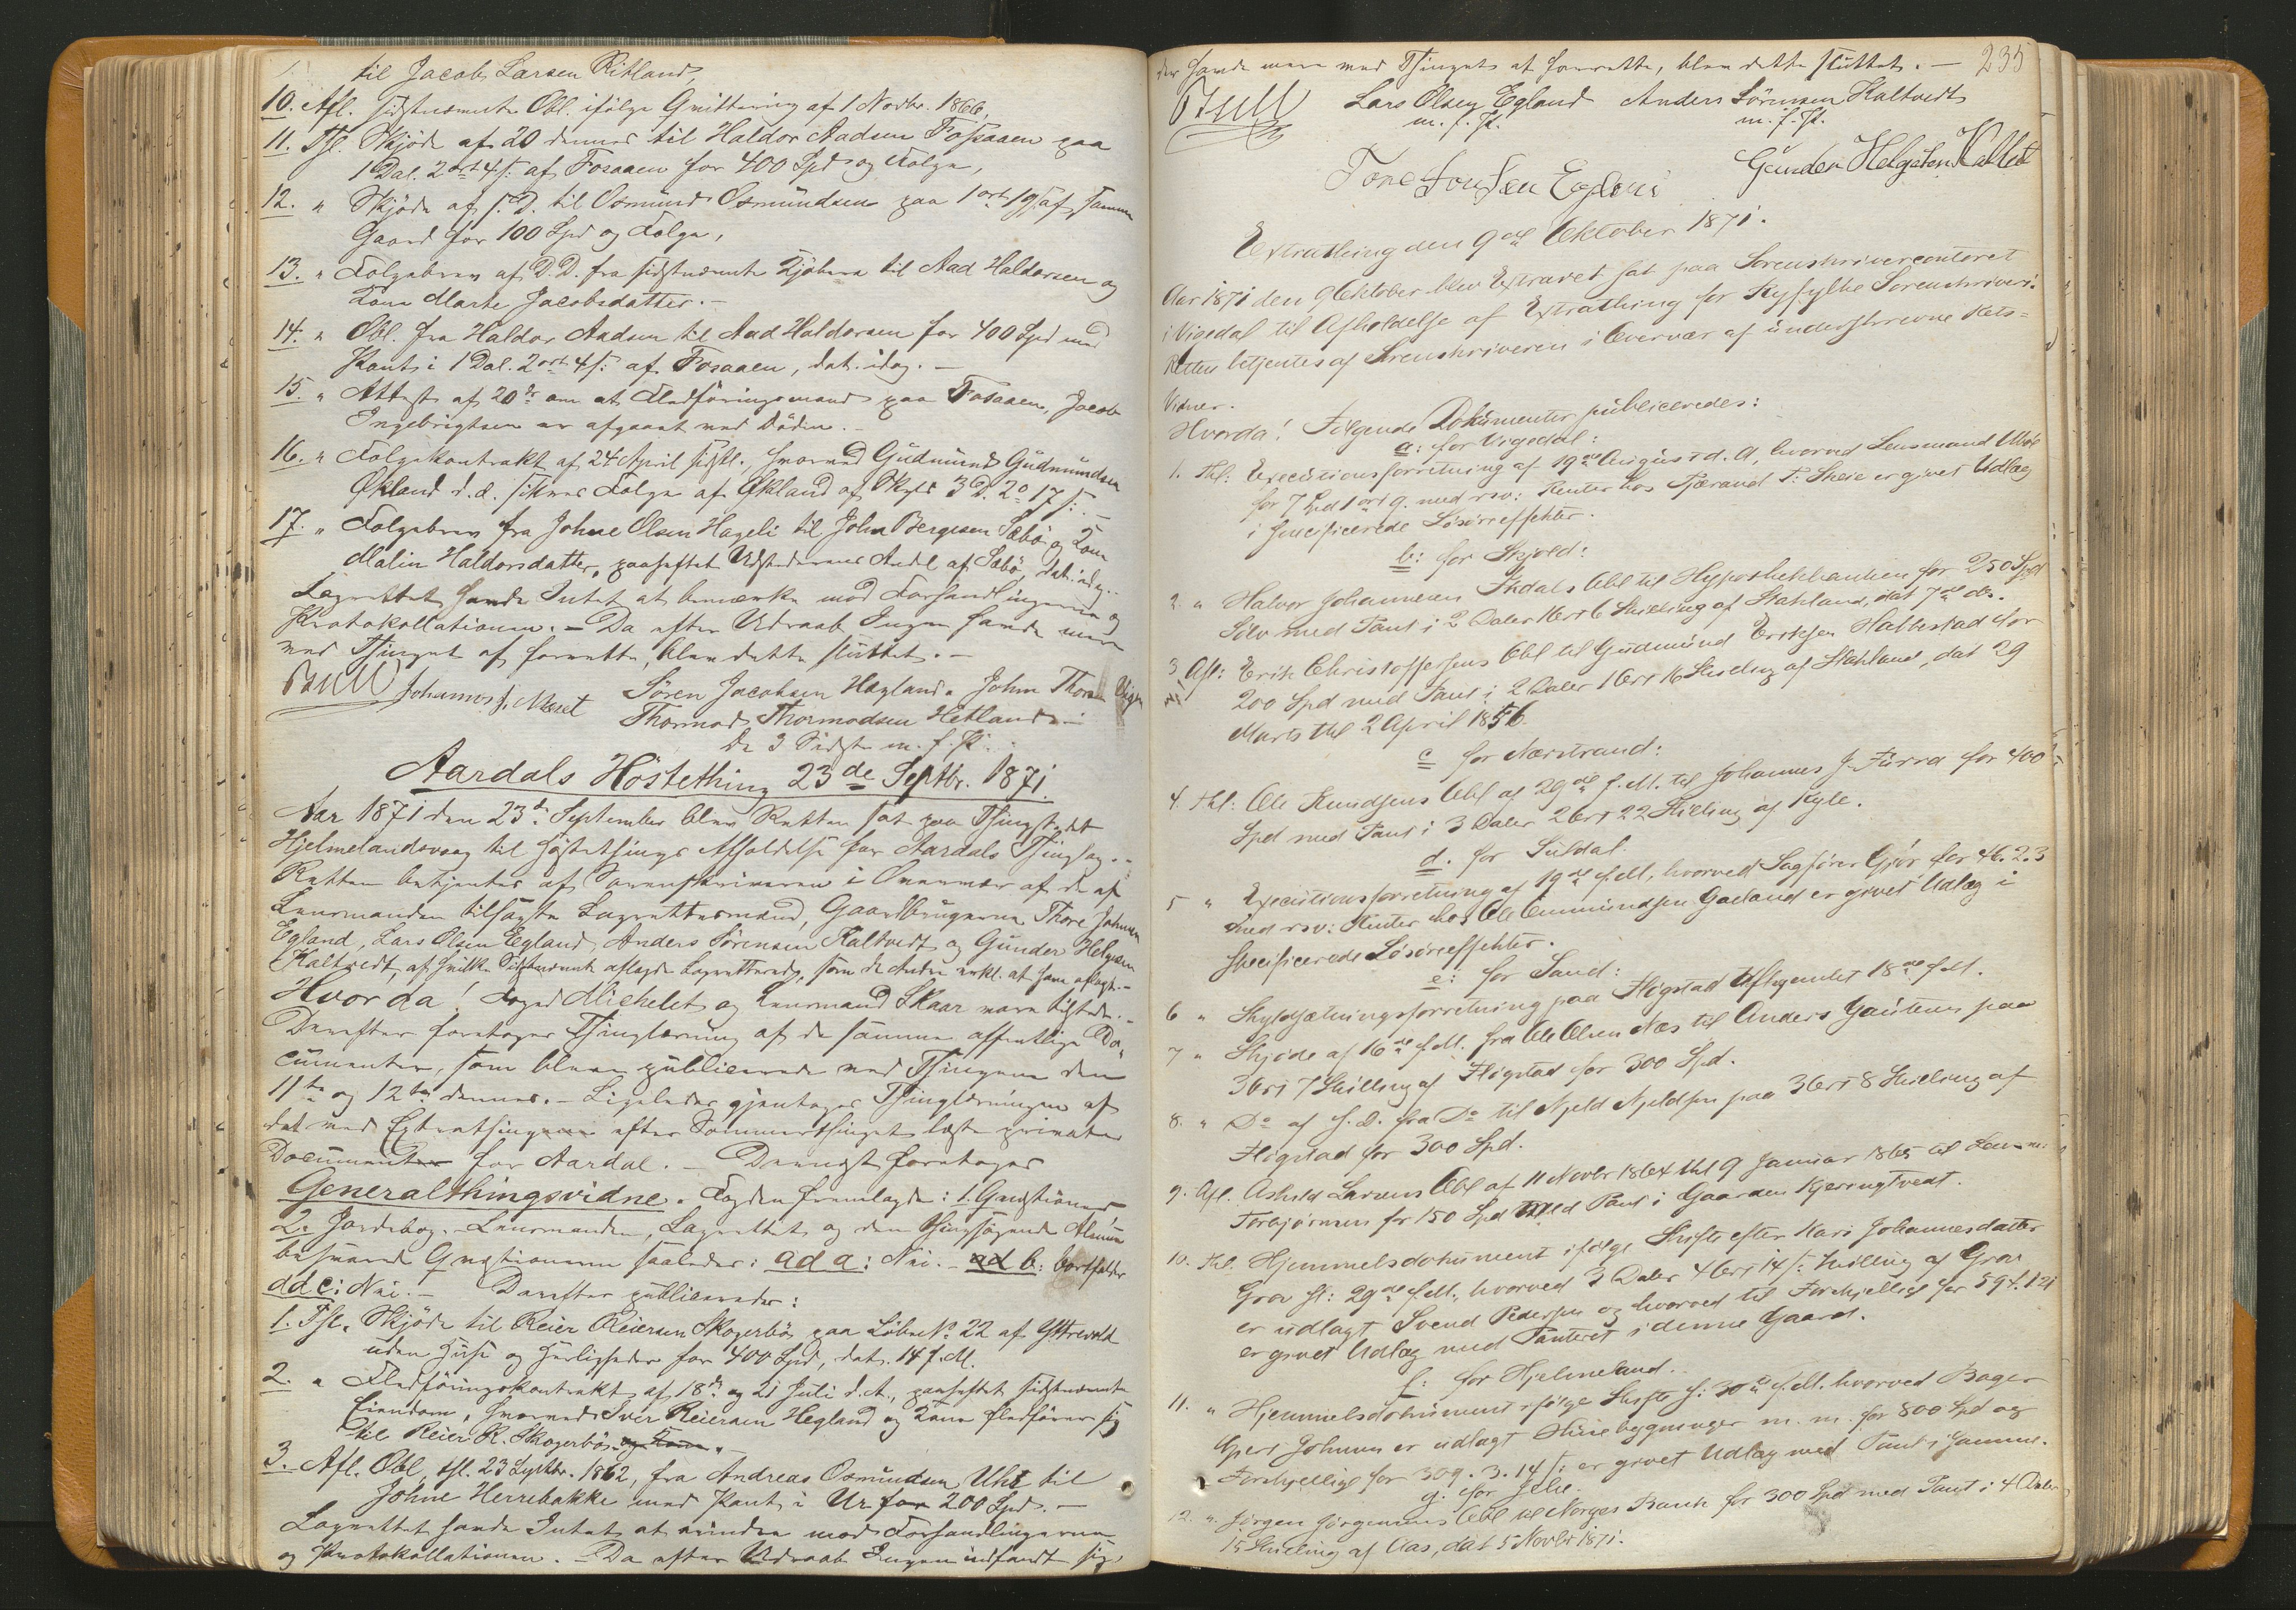 til Jacob Larsen Ritland,
10. Afl. sidstnævnte Obl. ifölge Qvittering af 1 Novbr. 1866,
11. Thl. Skjöde af 20 dennes til Haldor Aadsen Fossaaen paa
1 Dal. 2 ort 4 s: af Fosaaen for 400 Spd og Folge,
12. " Skjöde af s. D. til Osmund Osmundsen paa 1 ort 19 s: af samme
Gaard for 100 Spd og Folge,
13. " Folgebrev af D. D. fra sidstnævnte Kjöbere til Aad Haldorsen og
Kone Marte Jacobsdatter. -
14. " Obl. fra Haldor Aadsen til Aad Haldorsen for 400 Spd med
Pant i 1 Dal. 2 ort 4 s: af Fosaaen, dat. idag. -
15. " Attest af 20de om at Fledföringsmand paa Fosaaen, Jacob
Ingebrigtsen er afgaaet ved Döden. -
16. " Folgekontrakt af 24 April sidstl., hvorved Gudmund Gudmundsen
Økland d. æ. sikres Folge af Økland af Skyld 3 D. 2 o 17 s: -
17. " Folgebrev fra Johne Olsen Hageli til John Bergesen Sæbö og Kone
Malin Haldorsdatter, paaheftet Udstederens Andel af Sæbö, dat. idag. -
Lagrettet havde Intet at bemærke mod Forhandlingerne og
Protokollationen. - Da efter Udraab Ingen havde mere
ved Thinget at forrette, blev dette sluttet. -
Johannes J. Mæret Sören Jacobsen Hagland. John Thorsen
Thormod Thormodsen Hetland. -
De 3 Sidste m. f. P.
Aardals Höstething 23de Septbr. 1871.
Aar 1871 den 23de September blev Retten sat paa Thingstedet
Hjelmelandsvaag til Höstethings Afholdelse for Aardals Thinglag. -
Retten betjentes af Sorenskriveren i Overvær af de af
Lensmanden tilsagte Lagrettesmænd, Gaardbrugerne Thore Johnsen
Egland, Lars Olsen Egland, Anders Sörensen Kaltvedt og Gunder Helgesen
Kaltvedt, af hvilke Sidstnævnte aflagde Lagretteed, som de Andre erkl. at have aflagt. -
Hvorda! Foged Michelet og Lensmand Skaar vare tilstede. -
Derefter foretoges Thinglæsning af de samme offentlige Do-
cumenter, som bleve publicerede ved Thingene den
11te og 12te dennes. - Ligeledes gjentoges Thinglæsningen af
det ved Extrathingene efter Sommerthinget læste private
Documenter for Aardal. - Dernæst foretoges
Generalthingsvidne. Fogden fremlagde: 1. Qvæstioner
2. Jordebog. - Lensmanden, Lagrettet og den thingsögende Almue
besvarede Qvæstionerne saaledes: ad a: Nei. - ad b: bortfalder
ad c: Nei. - Derefter publiceredes:
1. Thl. Skjöde til Reier Reiersen Skogerbö paa Löbe No 22 af Ytrevold
uden Huse og Herligheder for 400 Spd, dat. 14 f. M.
2. " Fledföringskontrakt af 18de og 21 Juli d. A., paaheftet sidstnævnte
Eiendom, hvorved Iver Reiersen Hegland og Kone fledförer sig
til Reier R. Skogerbö og Kone. -
3. Afl. Obl. thl. 23 Septbr. 1862, fra Andreas Osmundsen Uhr til
Johne Herrebakke med Pant i Ur for 200 Spd. -
Lagrettet havde Intet at erindre mod Forhandlingerne
og Protokollationen. - Da efter Udraab Ingen indfandt sig,
der havde mere ved Thinget at forrette, blev dette sluttet. -
235
Lars Olsen Egland Anders Sörensen Kaltvedt
m. f. P. m. f. P.
Tore Jonsen Eglans Gunder Helgesen Kaltvet
Extrathing den 9de Oktober 1871.
Aar 1871 den 9 Oktober blev Extraret sat paa Sorenskrivercontoret
i Vigedal til Afholdelse af Extrathing for Ryfylke Sorenskriveri.
Retten betjentes af Sorenskriveren i Overvær af underskrevne Rets=
Vidner.
Hvorda! Følgende Dokumenter publiceredes:
a: for Vigedal:
1. Thl: Executionsforretning af 19de August d. A, hvorved Lensmand
for 7 Spd 1 ort 9. med rsv: Renter hos Tjærand T: Skeie er givet Udlæg
i specificerede Løsøreeffekter.
b: for Skjold:
2. " Halvor Johannesen Skdals Obl til Hypothekbanken for 250 Spd
Sölv med Pant i 2 Daler 1 Ort 6 Skilling af Stahland, dat 7de ds.
3 Afl: Erik Christoffersens Obl til Gudmund Eriksen Hallestad for
200 Spd med Pant i 2 Daler 1 Ort 16 Skilling af Stahland, dat 29
Marts thl 2 April 1856.
c for Nærstrand:
4. Thl: Ole Knudsens Obl af 29de f. M. til Johannes J. Furra for 400
Spd med Pant i 3 Daler 2 Ort 22 Skilling af Kyle.
d. for Suldal.
5 " Executionsforretning af 19de f. M, hvorved Sagfører Gjör for 46. 2. 3
med rsv: Renter hos Ole Ommundsen Gaeland er givet Udlæg i
specificerede Løsøreeffekter.
e: for Sand:
6 " Skyldsætningsforretning paa Fløgstad Afhjemlet 18de f. M.
7 " Skjøde af 16de f. M. fra Ole Olsen Næs til Anders Gautesen paa
3 Ort 7 Skilling af Fløgstad for 300 Spd.
8. " Do af s. D. fra Do til Njeld Njeldsen paa 3 Ort 8 Skilling af
Fløgstad for 300 Spd.
9. Afl. Askild Larsens Obl af 11 Novbr 1864 thl 9 Januar 1865 til
Torbjørnsen for 150 Spd med Pant i Gaarden Kjerringtveat.
10. Thl. Hjemmelsdokument ifølge Skifte efter Kari Johannesdatter
Grov sl: 29de f. M., hvorved 3 Daler 4 Ort 14 s: Skilling af Grov
er udlagt Svend Pedersen og hvorved til Forskjellige for 594. 1. 21
er givet Udlæg med Panteret i denne Gaard.
f: for Hjelmeland.
11. " Hjemmelsdokument ifølge Skifte s: 30de f. M. hvorved Bager
Gjert Johnsen er udlagt Huusebygninger m. m. for 800 Spd og
Forskjellige for 309. 3. 14 s: er givet Udlæg med Pant i Samme.
g: for Jelse.
12. " Jørgen Jørgensens Obl til Norges Bank for 300 Spd med Pant i 4 Daler
15 Skilling af Aas, dat 5 Novbr 1871.